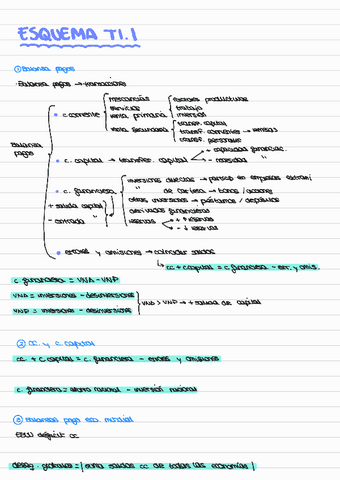 ESQUEMA T1.1
① Balanza pagos
Balanza pagos → transacciones
Balanza pagos
c. corriente
mercancías
servicios
renta primaria
factores productivos
trabajo
inversión
renta secundaria
transf. capital
transf. corrientes → remesas
transf. personales
c. capital → transfer. capital
→ capacidad financiac.
→ necesidad "
c. financiera
+ salida capital
- entrada "
inversiones directas → particip en empresas extranj
" de cartera → bonos / acciones
otras inversiones → préstamos / depósitos
derivados financieros
reservas
→ + reservas
→ - ↓ reservas
errores y omisiones → cuadrar saldos
↳ cc + ccapital = c financiera - err. y omis.
c financiera = VNA - VNP
VNA = inversiones - desinversiones
VNP = inversiones - desinversiones
VNA > VNP → + salida de capital
② CC. y C capital
cc + c capital = c. financiera - errores y omisiones
c. financiera = ahorro nacional - inversión nacional
③ Balanzas pago eco. mundial
EEUU déficit cc
deseq. globales = | suma saldos cc de todas las economías |